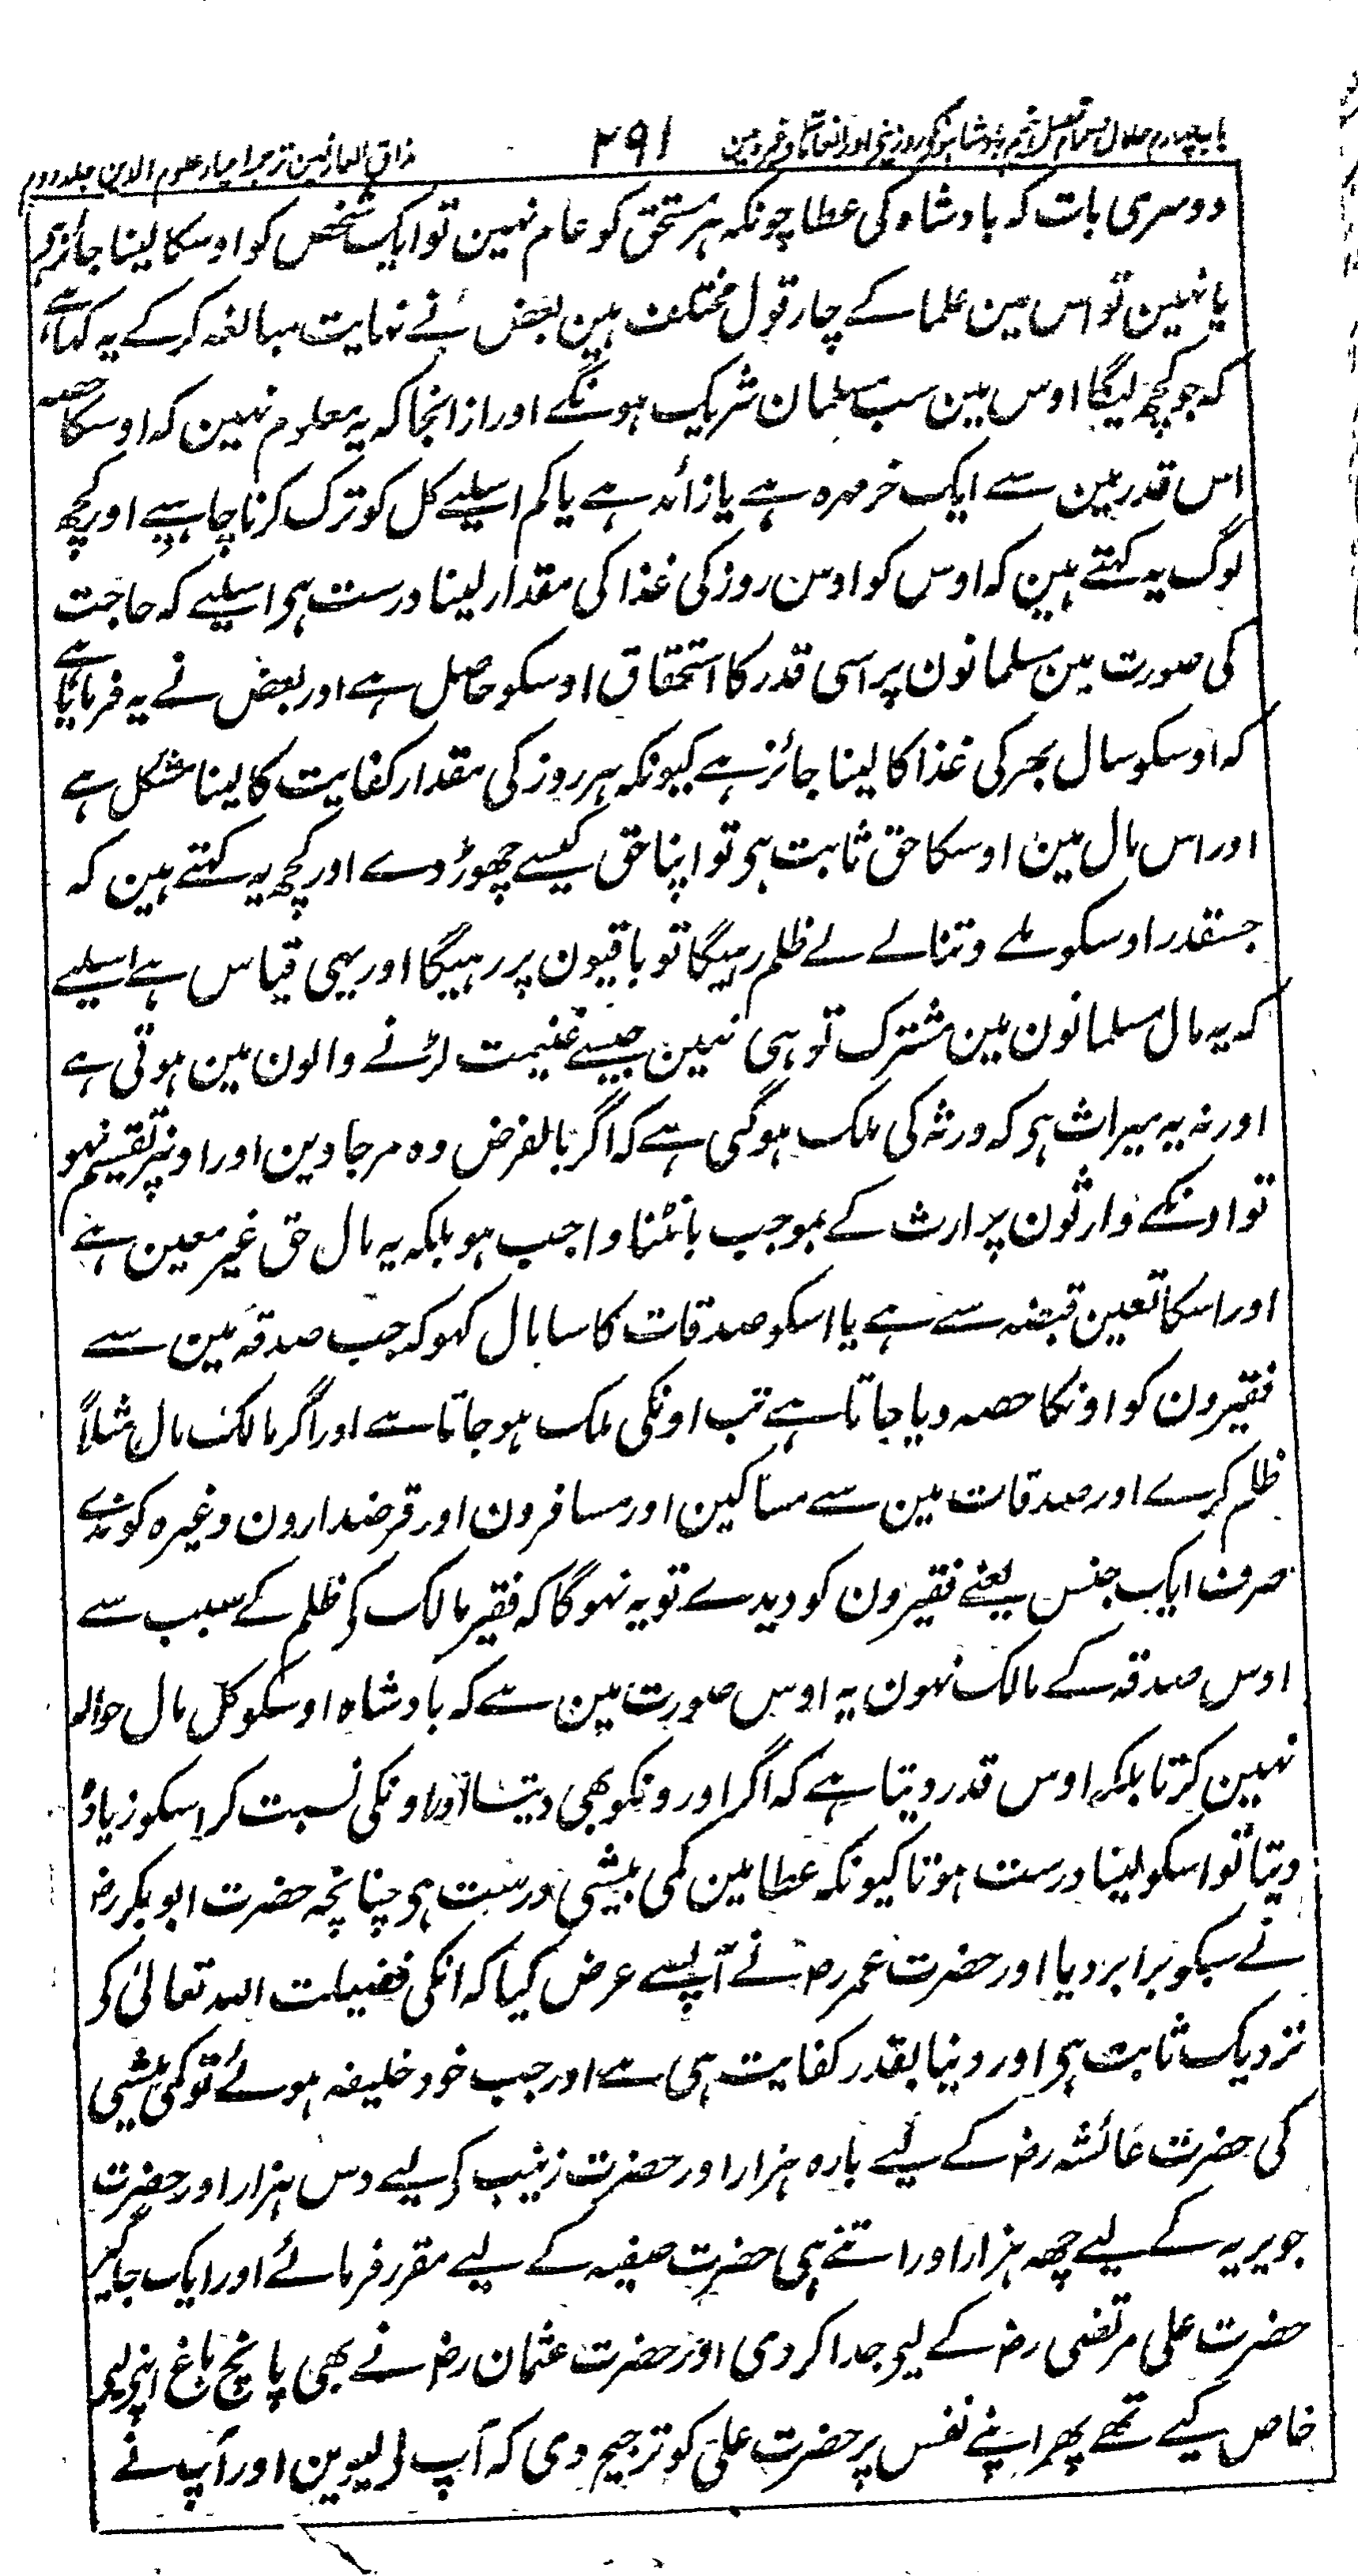 باب چہارم حلال ۲۹۱ مذاق العارفین ترجمہ احیاء علوم الدین جلد دوم
دوسری بات کہ بادشاہ کی عطا چونکہ ہر مستحق کو عام نہین تو ایک شخص کو اوسکا لینا جائز ہی
یا نہین تو اس مین علما کے چار قول مختلف ہین بعض نے نہایت مبالغہ کرکے یہ کہا ہے
کہ جو کچھ لیگا اوس مین سب مسلمان شریک ہونگے اور ازانجا کہ یہ معلوم نہین کہ اوسکا حصہ
اس قدر مین سے ایک خرمہرہ ہے یا زائد ہے یا کم اسلیے کل کو ترک کرنا چاہیے اور کچھ
لوگ یہ کہتے ہین کہ اوس کو اوس روز کی غذا کی مقدار لینا درست ہی اسلیے کہ حاجت
کی صورت مین مسلمانون پر اسی قدر کا استحقاق اوسکو حاصل ہے اور بعض نے یہ فرمایا ہے
کہ اوسکو سال بھر کی غذا کا لینا جائز ہے کیونکہ ہر روز کی مقدار کفایت کا لینا مشکل ہے
اور اس مال مین اوسکا حق ثابت ہی تو اپنا حق کیسے چھوڑ دے اور کچھ یہ کہتے ہین کہ
جسقدر اوسکو ملے وتنا لے لے ظلم رہیگا تو باقیون پر رہیگا اور یہی قیاس ہے اسلیے
کہ یہ مال مسلمانون مین مشترک تو ہی نہین جیسے غنیمت لڑنے والون مین ہوتی ہے
اور نہ یہ میراث ہی کہ ورثہ کی ملک ہوگئی ہے کہ اگر بالفرض وہ مر جاوین اور اونپر تقسیم نہو
تو اونکے وارثون پر ارث کے بموجب بانٹنا واجب ہو بلکہ یہ مال حق غیر معین ہے
اور اسکا تعین قبضہ سے ہے یا اسکو صدقات کا سا مال کہو کہ جب صدقہ مین سے
فقیرون کو اونکا حصہ دیا جاتا ہے تب اونکی ملک ہو جاتا ہے اور اگر مالک مال مثلاً
ظلم کرے اور صدقات مین سے مساکین اور مسافرون اور قرضدارون وغیرہ کو ندے
صرف ایک جنس یعنے فقیرون کو دیدے تو یہ نہوگا کہ فقیر مالک کی ظلم کے سبب سے
اوس صدقہ کے مالک نہون یہ اوس صورت مین ہے کہ بادشاہ اوسکو کل مال حوالہ
نہین کرتا بلکہ اوس قدر دیتا ہے کہ اگر اورونکو بھی دیتا اور اونکی نسبت کر اسکو زیادہ
دیتا تو اسکو لینا درست ہوتا کیونکہ عطا مین کمی بیشی درست ہی چنانچہ حضرت ابو بکر رض
نے سبکو برابر دیا اور حضرت عمر رض نے آپسے عرض کیا کہ انکی فضیلت اللہ تعالیٰ کی
نزدیک ثابت ہی اور دنیا بقدر کفایت ہی ہے اور جب خود خلیفہ ہوئے تو کمی بیشی
کی حضرت عائشہ رض کے لیے بارہ ہزار اور حضرت زینب کی لیے دس ہزار اور حضرت
جویریہ کے لیے چھہ ہزار اور اتنے ہی حضرت صفیہ کے لیے مقرر فرمائے اور ایک جاگیر
حضرت علی مرتضی رض کے لیی جدا کر دی اور حضرت عثمان رض نے بھی پانچ باغ اپنی لیی
خاص کیے تھے پھر اپنے نفس پر حضرت علی کو ترجیح دی کہ آپ لے لیوین اور آپ نے